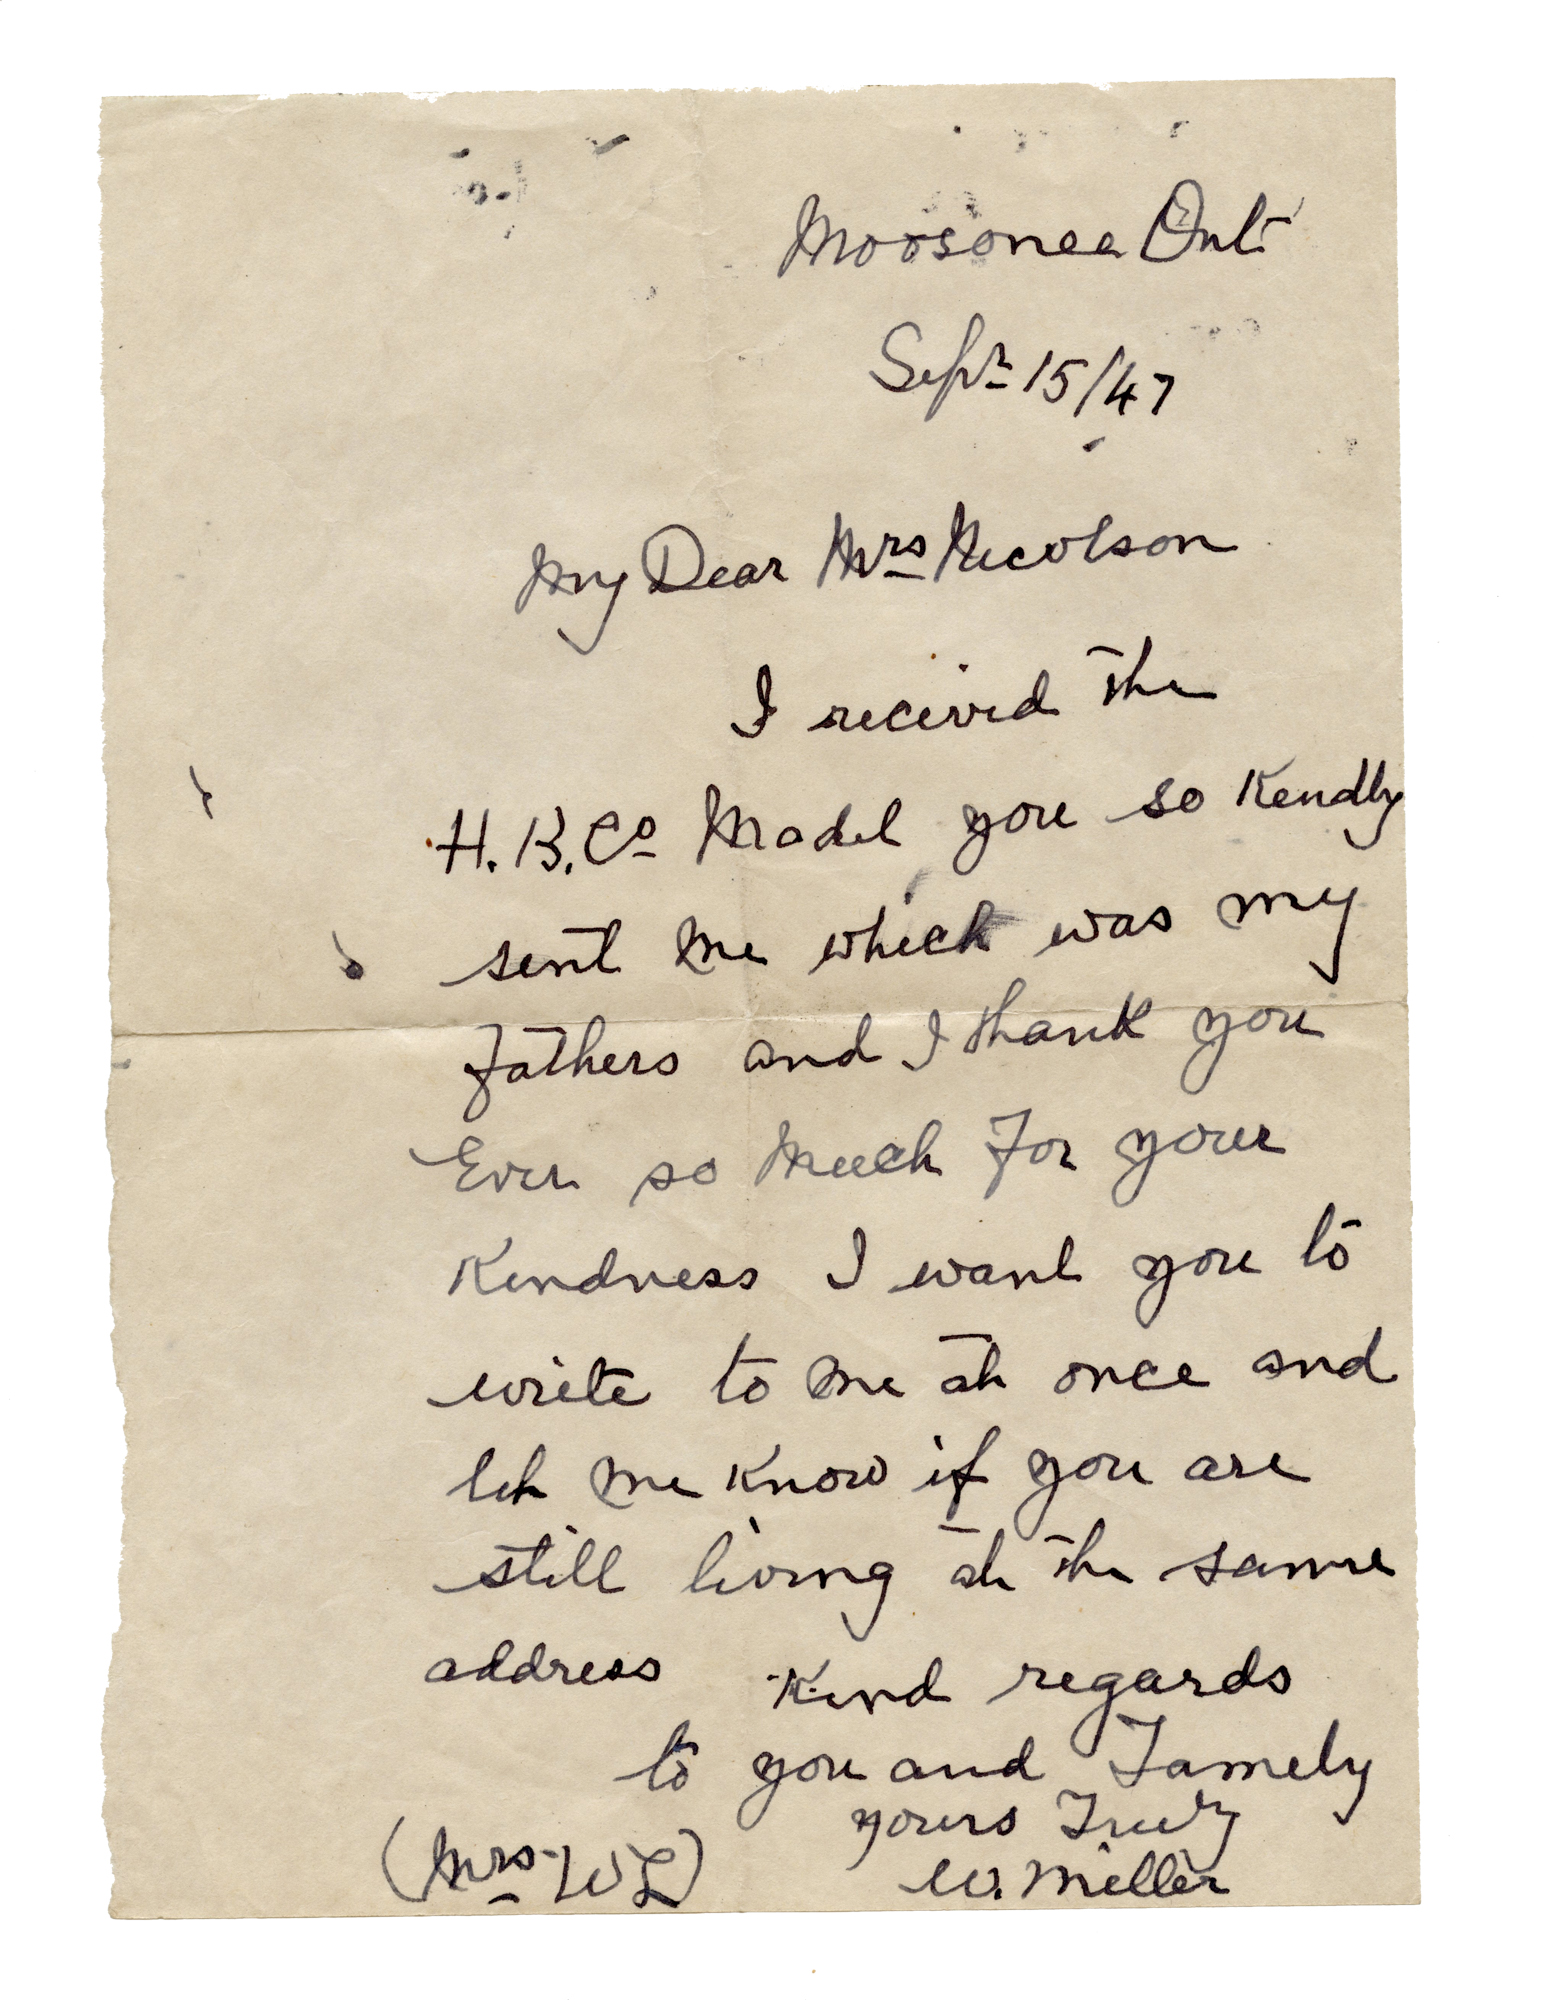 Moosonee Ont
Sept 15/47
My Dear Mrs Nicolson
I recieved the
H. B. Co Madel you so Kindly
sent me which was my
fathers and I thank you
Ever so Much For your
Kindness I want you to
write to me at once and
let me Know if you are
still living at the same
address Kind regards
to you and Family
yours Truly
(Mrs W L) W. Miller